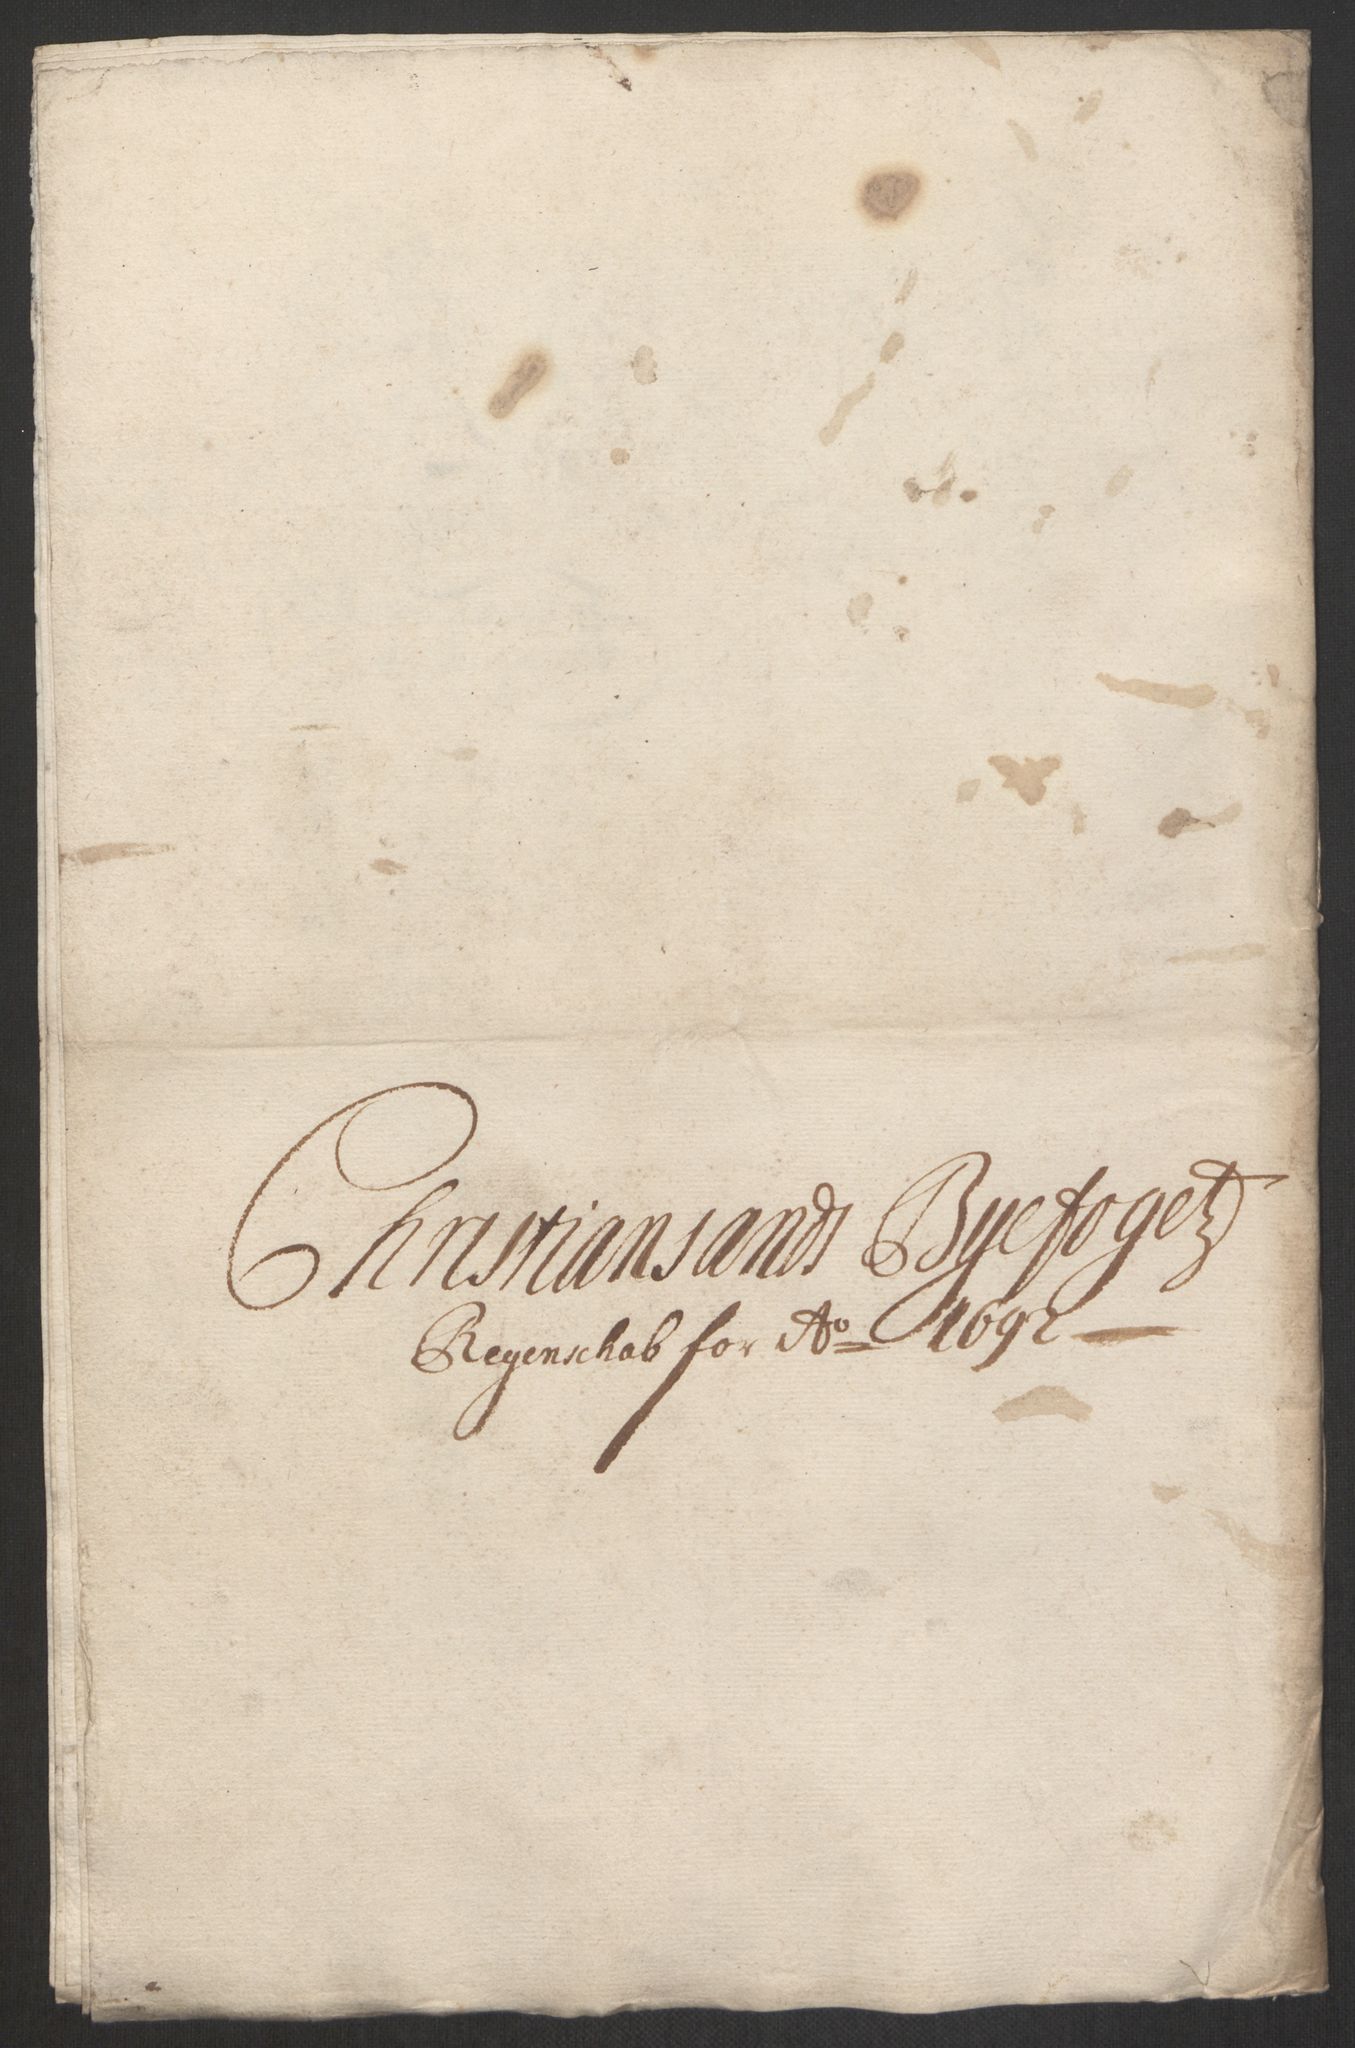 Christiansands Byefogetz
Regenschab for Ao 1692